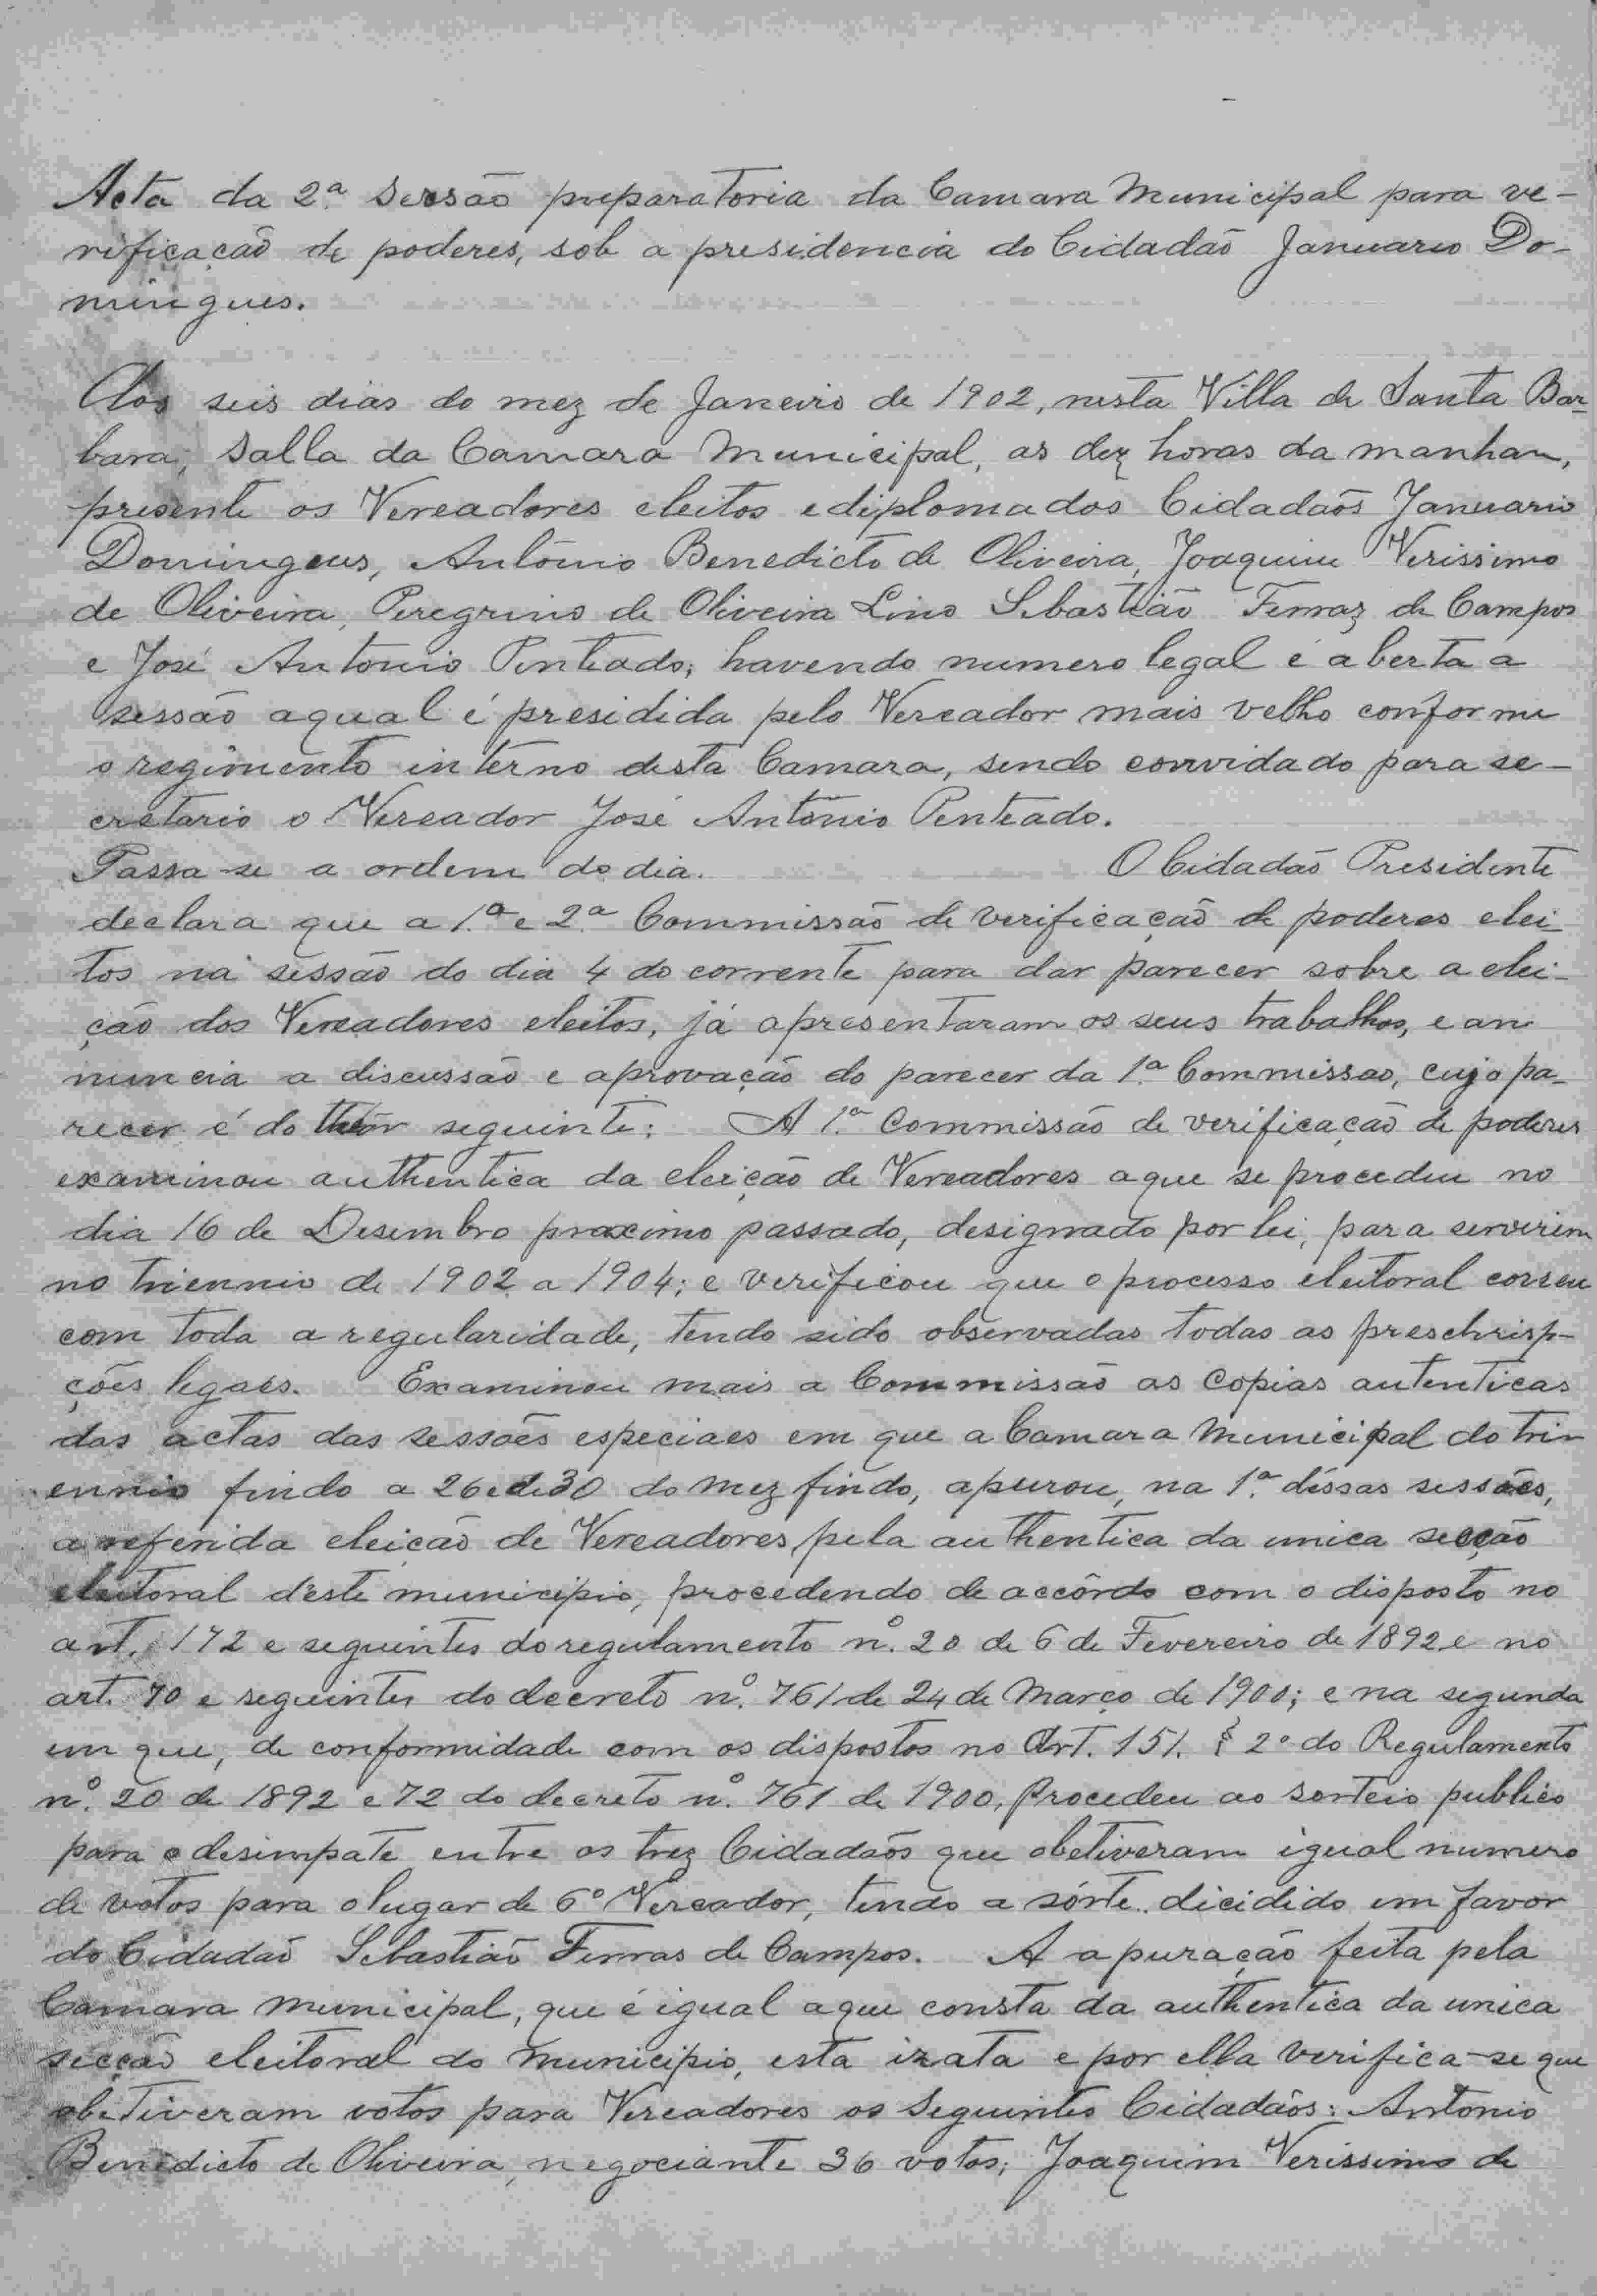 Acta da 2ª Sessão preparatoria da Camara Municipal para ve-
rificação de poderes, sob a presidencia do Cidadão Januario Do-
mingues.
Aos seis dias do mez de Janeiro de 1902, nesta Villa de Santa Bar-
bara, Salla da Camara Municipal, as dez horas da manhan,
presente os Vereadores eleitos e diplomados Cidadãos Januario
Domingeus, Antonio Benedicto de Oliveira, Joaquim Verissimo
de Oliveira, Peregrino de Oliveira Lino Sebastião Ferraz de Campos
e José Antonio Penteado; havendo numero legal é aberta a
sessão a qual é presidida pelo Vereador mais velho conforme
o regimento interno desta Camara, sendo convidado para se-
cretario o Vereador José Antonio Penteado.
Passa-se a ordem do dia. O Cidadão Presidente
declara que a 1.ª e 2.ª Commissão de verificação de poderes elei-
tos na sessão do dia 4 do corrente para dar parecer sobre a elei-
ção dos Vereadores eleitos, já apresentaram os seus trabalhos, e an
nuncia a discussão e aprovação do parecer da 1.ª Commissao, cujo pa-
recer é do theor seguinte: A 1.ª Commissão de verificação de poderes
examinou authentica da eleição de Vereadores a que se procedeu no
dia 16 de Desembro proximo passado, designado por lei, para servirem
no triennio de 1902 a 1904; e verificou que o processo eleitoral correu
com toda a regularidade, tendo sido observadas todas as preschrisp-
ções legaes. Examinou mais a Commissão as copias autenticas
das actas das sessões especiaes em que a Camara Municipal do tri-
ennio findo a 26 e de 30 do mez findo, apurou, na 1.ª déssas sessões,
a referida eleição de Vereadores pela authentica da unica secção
eleitoral d'este municipio, procedendo de accôrdo com o disposto no
art. 172 e seguintes do regulamento nº. 20 de 6 de Fevereiro de 1892 e no
art. 70 e seguintes do decreto nº. 761 de 24 de Março de 1900; e na segunda
em que, de conformidade com os dispostos no Art. 151. § 2º do Regulamento
nº. 20 de 1892 e 72 do decreto nº. 761 de 1900, Procedeu ao sorteio publico
para o desimpate entre os trez Cidadãos que obetiveram igual numero
de votos para o lugar de 6º Vereador, tendo a sórte dicidido em favor
do Cidadão Sebastião Ferras de Campos. A apuração feita pela
Camara Municipal, que é igual a que consta da authentica da unica
secção eleitoral do Municipio, esta izata e por ella verifica-se que
obetiveram votos para Vereadores os Seguintes Cidadãos: Antonio
Benedicto de Oliveira, negociante 36 votos; Joaquim Verissimo de